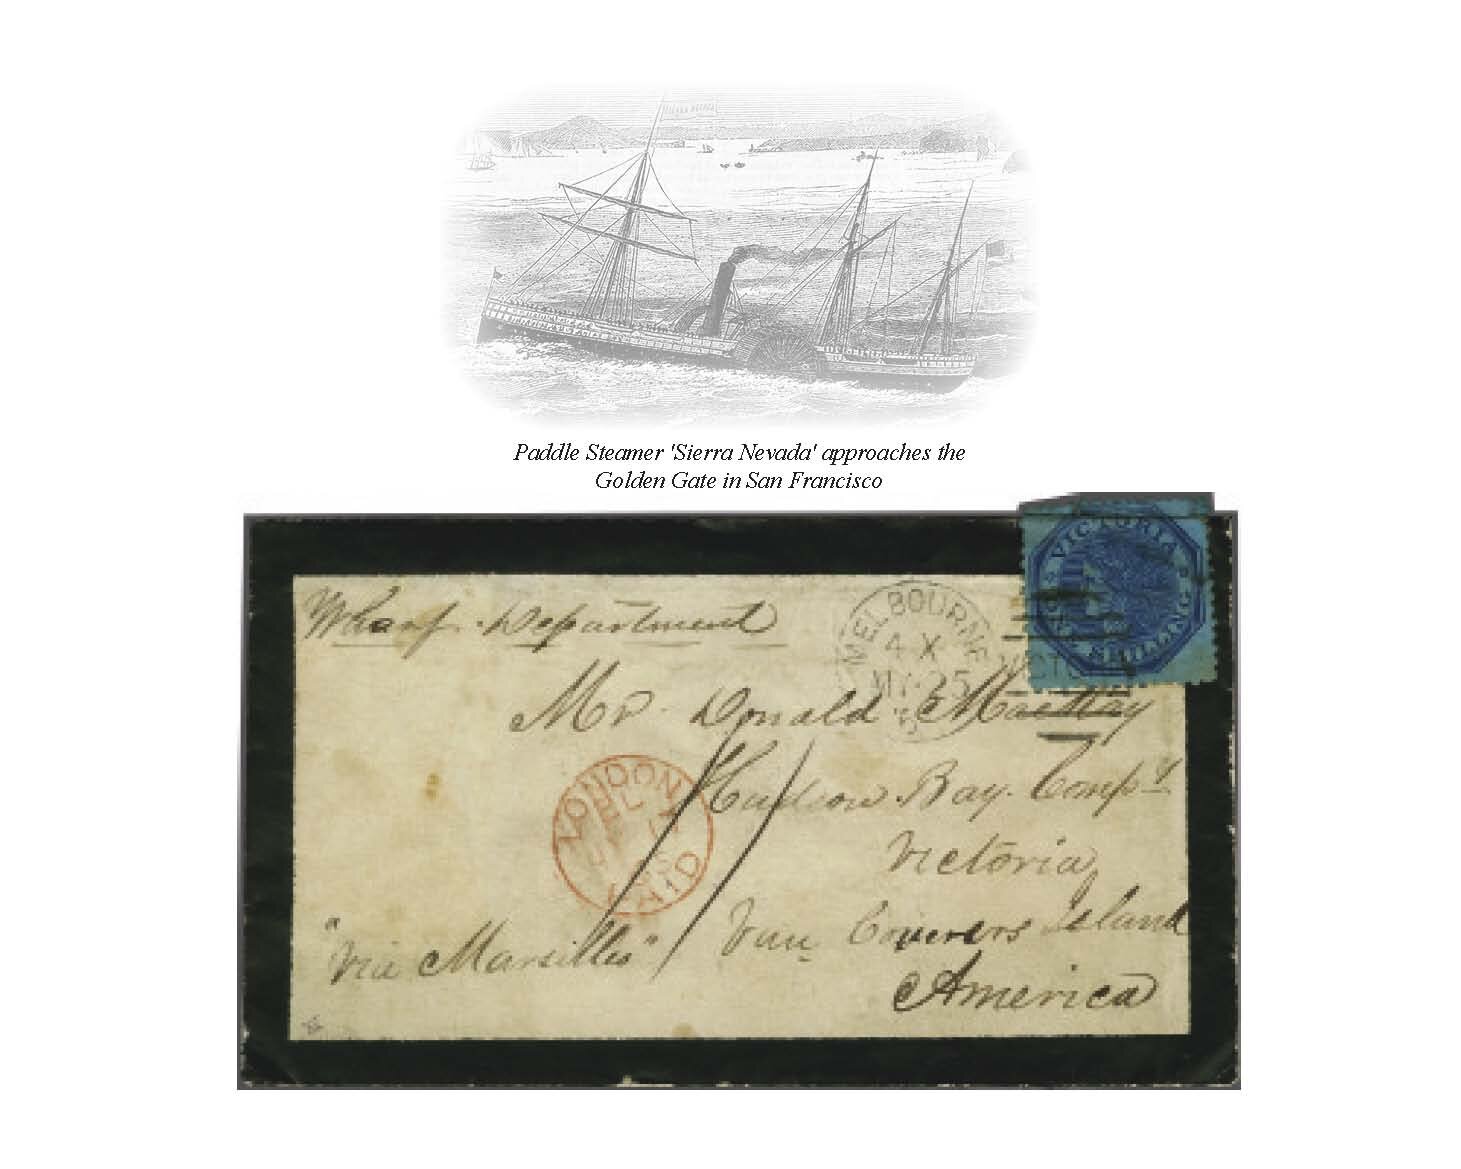 Paddle Steamer 'Sierra Nevada' approaches the
Golden Gate in San Francisco
VICTORIA
ONE SHILLING
Wharf Department
MELBOURNE
4 X
MY 25
Mr. Donald MacKay
Hudson Bay Compy
LONDON
PAID
Victoria
"Via Marseilles"
Van Couvers Island
America